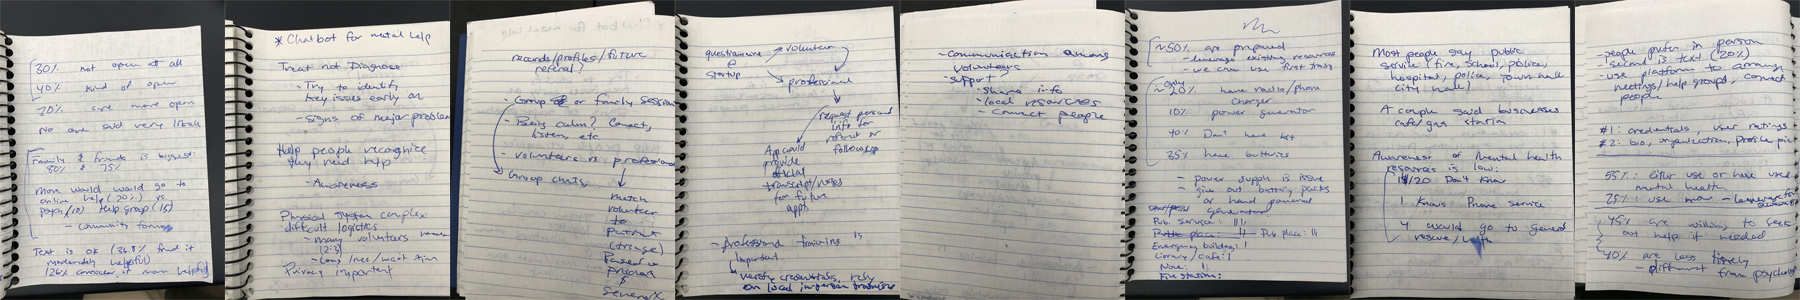 30% not open at all
40% kind of open
30% are more open
No one said very likely
Family & friends is biggest:
80% & 75%
More would go to
online help (20%) vs.
psych (10) Help group (15)
- community forums
Text is ok (36.8% find it
moderately helpful)
(26% consider it more helpful)
* Chatbot for mental help
Treat not Diagnose
- Try to identify
key issues early on
- signs of major problem
Help people recognize
they need help
- Awareness
Physical System complex
difficult logistics
- many volunteers
- Long lines/wait time
Privacy important
records/profiles/future
referal?
- Group or family session
- Being calm? Connect,
listen, etc.
- volunteers vs. professional
Group chats,
match
volunteer
to
Patient
(triage)
Based on
&
severity
questionnaire → volunteer
&
startup
→ professional
request personal
info for
referal or
followup
App could
provide
official
transcript/notes
for future
appts
- professional training is
important
verify credentials, rely
on local in-person training
- communication among
volunteers
- support?
- share info
- local resources
- connect people
~50% are prepared
- leverage existing resources
- we can use first
only
~20% have radio/phone
charger
10% power generator
40% Don't have kit
35% have batteries
- power supply is issue
- give out battery packs
or hand powered
generator
Pub. service:
Public place: Pub place:
Emergency building:
Library/cafe:
None:
Fire station:
Most people say public
service (fire, school, police,
hospital, police, town hall
city hall)
A couple said businesses
cafe/gas station
Awareness of mental health
resources is low:
15/20 Don't know
1 knows Phone service
4 would go to general
- people prefer in person
- second is text (20%)
- use platform to arrange
meetings/help groups, connect
people
#1: credentials, user ratings
#2: bio, organization, profile pic
55%: either use or have used
mental health
25%: use now
45% are willing to seek
out help if needed
40% are less likely
- different from psychologist